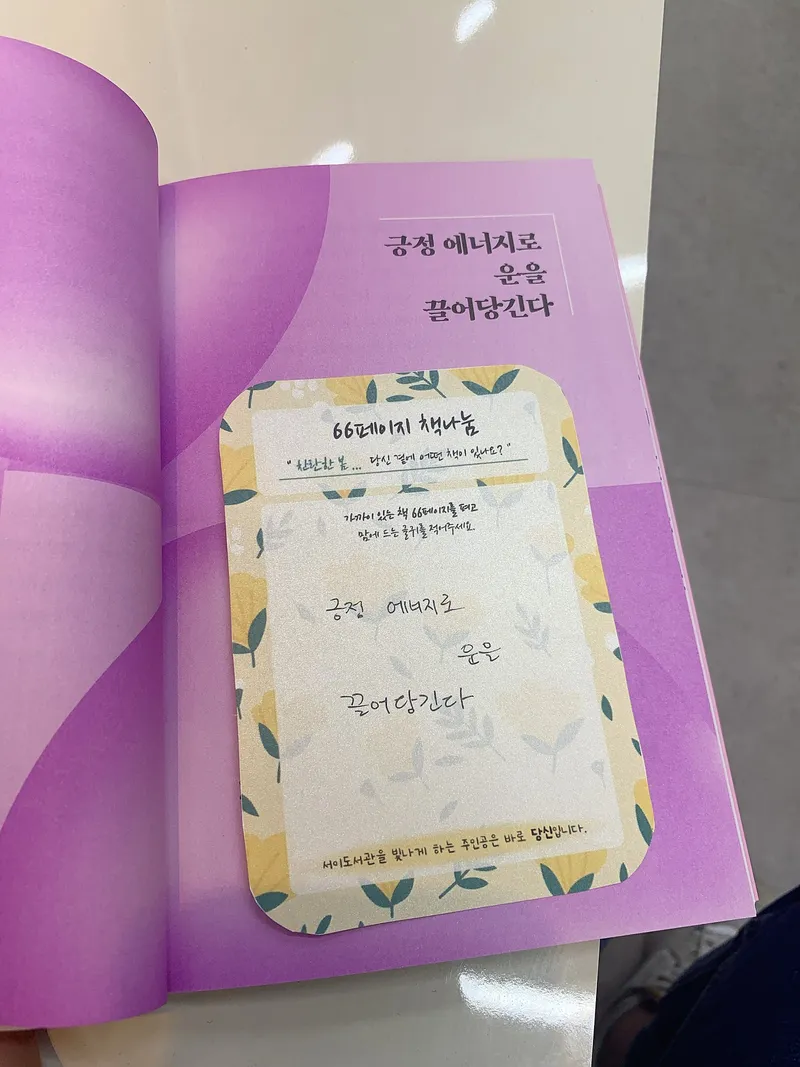 긍정 에너지로
운을
끌어당긴다
66페이지 책나눔
"찬란한 봄... 당신 곁에 어떤 책이 있나요?"
가까이 있는 책 66페이지를 펴고
맘에 드는 글귀를 적어주세요.
긍정 에너지로
운을
끌어당긴다
서이도서관을 빛나게 하는 주인공은 바로 당신입니다.